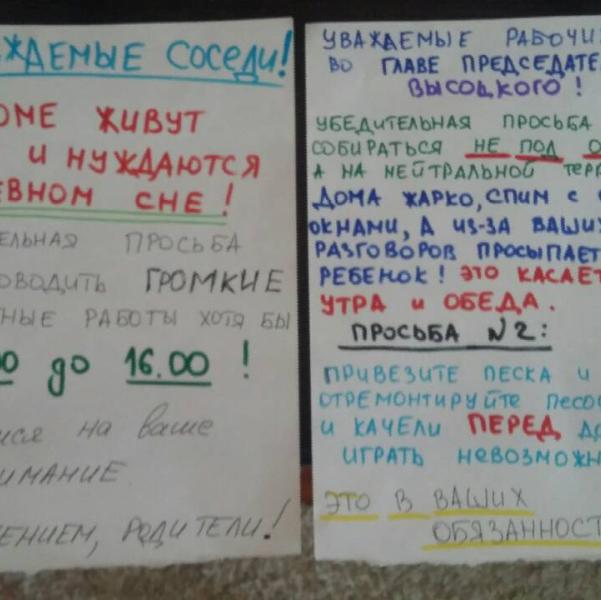 ЖАЕМЫЕ СОСЕДИ!
ОМЕ ЖИВУТ
И НУЖДАЮТСЯ
ЕВНОМ СНЕ!
ЕЛЬНАЯ ПРОСЬБА
ОВОДИТЬ ГРОМКИЕ
НЫЕ РАБОТЫ ХОТЯ БЫ
0 до 16.00 !
ся на ваше
ИМАНИЕ
ЕНИЕМ, РОДИТЕЛИ!
УВАЖАЕМЫЕ РАБОЧИ
ВО ГЛАВЕ ПРЕДСЕДАТЕ
ВЫСОЦКОГО!
УБЕДИТЕЛЬНАЯ ПРОСЬБА
СОБИРАТЬСЯ НЕ ПОД О
А НА НЕЙТРАЛЬНОЙ ТЕР
ДОМА ЖАРКО, СПИМ С
ОКНАМИ, А ИЗ-ЗА ВАШИ
РАЗГОВОРОВ ПРОСЫПАЕТ
РЕБЕНОК! ЭТО КАСАЕТ
УТРА И ОБЕДА.
ПРОСЬБА N2:
ПРИВЕЗИТЕ ПЕСКА И
ОТРЕМОНТИРУЙТЕ ПЕСО
И КАЧЕЛИ ПЕРЕД ДО
ИГРАТЬ НЕВОЗМОЖН
ЭТО В ВАШИХ
ОБЯЗАННОСТ